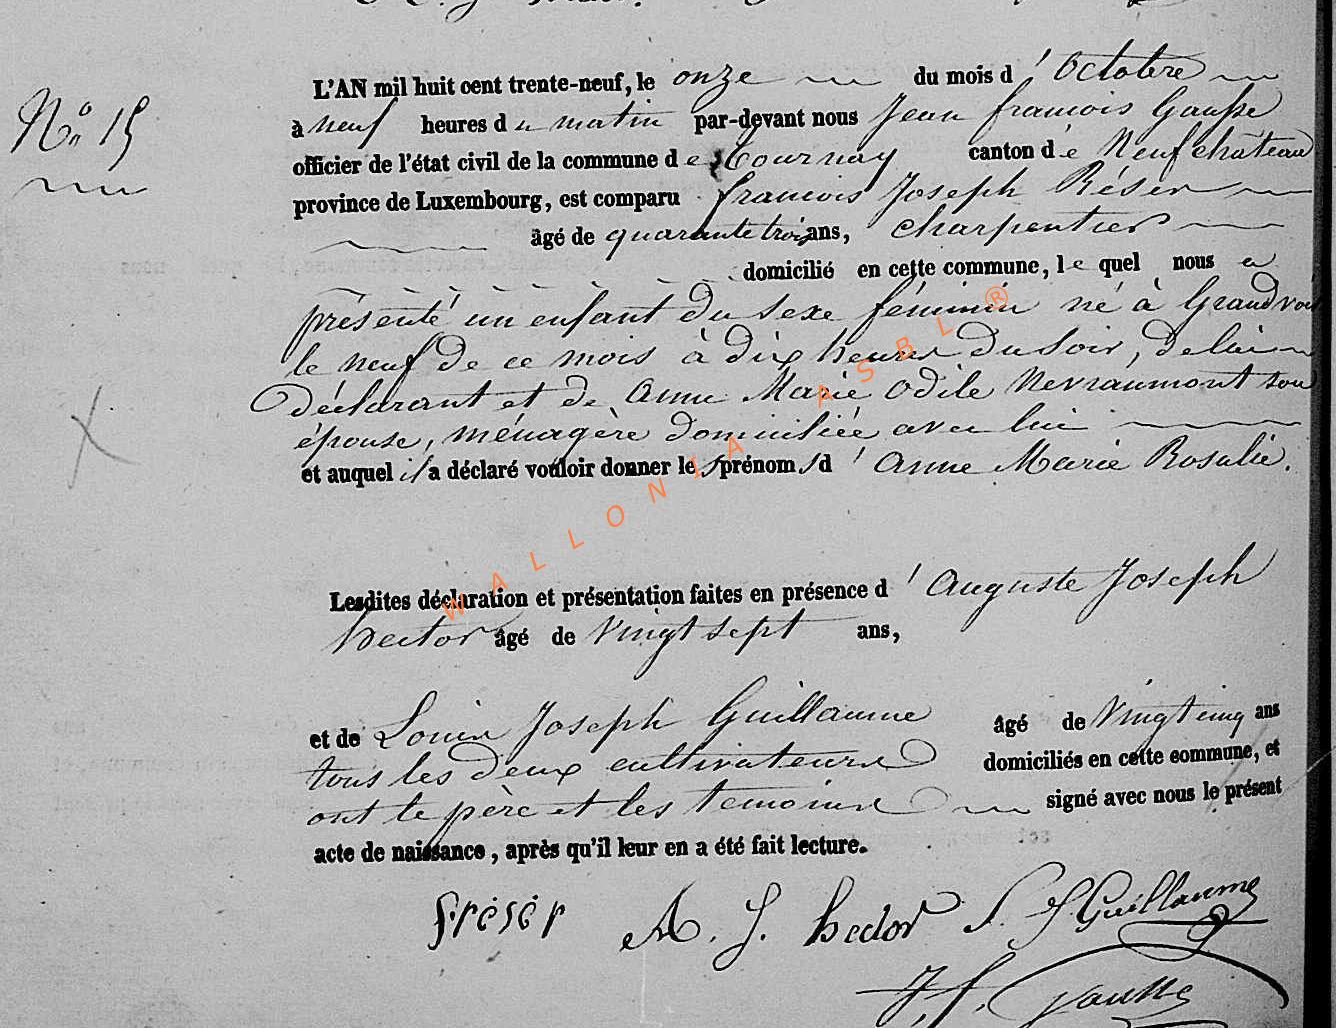 L'AN mil huit cent trente-neuf, le onze du mois d'Octobre
N° 15
à neuf heures du matin par-devant nous Jean francois Gausse
officier de l'état civil de la commune de Tournay canton de Neufchâteau
province de Luxembourg, est comparu francois Joseph Réser
âgé de quarante trois ans, charpentier
domicilié en cette commune, lequel nous a
présenté un enfant du sexe féminin né à Grandvoir
le neuf de ce mois à dix heures du soir, de lui
déclarant et de Anne Marie Odile Nevraumont son
épouse, ménagère domiciliée avec lui
et auquel il a déclaré vouloir donner les prénoms d'Anne Marie Rosalie.
Lesdites déclaration et présentation faites en présence d'Auguste Joseph
hector âgé de Vingt sept ans,
et de Louis Joseph Guillaume âgé de Vingt cinq ans
tous les deux cultivateurs domiciliés en cette commune, et
ont le père et les temoins signé avec nous le présent
acte de naissance, après qu'il leur en a été fait lecture.
A. J. hector L. J. Guillaume
J. f. Gausse
WALLONIA ASBL ®